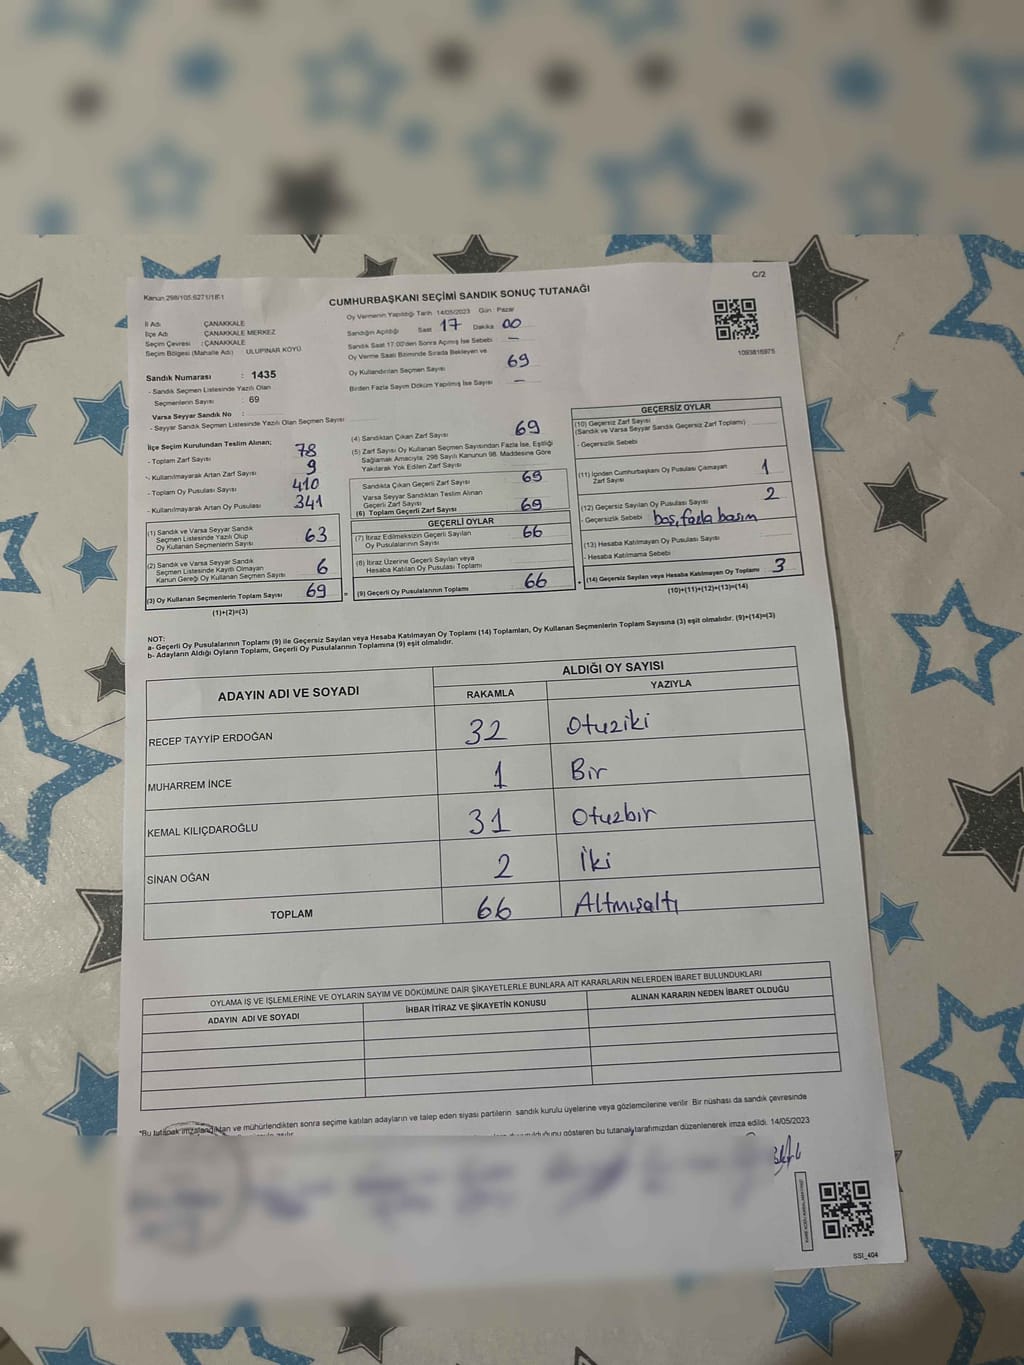 Kanun 298/105 6271/18-1
C/2
CUMHURBAŞKANI SEÇİMİ SANDIK SONUÇ TUTANAĞI
1093816975
İl Adı ÇANAKKALE
İlçe Adı ÇANAKKALE MERKEZ
Seçim Çevresi : ÇANAKKALE
Seçim Bölgesi (Mahalle Adı) ULUPINAR KÖYÜ
Sandık Numarası : 1435
- Sandık Seçmen Listesinde Yazılı Olan
Seçmenlerin Sayısı : 69
Varsa Seyyar Sandık No :
- Seyyar Sandık Seçmen Listesinde Yazılı Olan Seçmen Sayısı
Oy Vermenin Yapıldığı Tarih 14/05/2023 Gün : Pazar
Sandığın Açıldığı Saat 17 Dakika 00
Sandık Saat 17:00'den Sonra Açılmış İse Sebebi —
Oy Verme Saati Bitiminde Sırada Bekleyen ve
Oy Kullandırılan Seçmen Sayısı 69
Birden Fazla Sayım Döküm Yapılmış İse Sayısı —
İlçe Seçim Kurulundan Teslim Alınan;
- Toplam Zarf Sayısı 78
- Kullanılmayarak Artan Zarf Sayısı 9
- Toplam Oy Pusulası Sayısı 410
- Kullanılmayarak Artan Oy Pusulası 341
(1) Sandık ve Varsa Seyyar Sandık
Seçmen Listesinde Yazılı Olup
Oy Kullanan Seçmenlerin Sayısı 63
(2) Sandık ve Varsa Seyyar Sandık
Seçmen Listesinde Kayıtlı Olmayan
Kanun Gereği Oy Kullanan Seçmen Sayısı 6
(3) Oy Kullanan Seçmenlerin Toplam Sayısı 69 =
(1)+(2)=(3)
(4) Sandıktan Çıkan Zarf Sayısı 69
(5) Zarf Sayısı Oy Kullanan Seçmen Sayısından Fazla İse, Eşitliği
Sağlamak Amacıyla, 298 Sayılı Kanunun 98. Maddesine Göre
Yakılarak Yok Edilen Zarf Sayısı
Sandıkta Çıkan Geçerli Zarf Sayısı 69
Varsa Seyyar Sandıktan Teslim Alınan
Geçerli Zarf Sayısı
(6) Toplam Geçerli Zarf Sayısı 69
GEÇERLİ OYLAR
(7) İtiraz Edilmeksizin Geçerli Sayılan
Oy Pusulalarının Sayısı 66
(8) İtiraz Üzerine Geçerli Sayılan veya
Hesaba Katılan Oy Pusulası Toplamı
(9) Geçerli Oy Pusulalarının Toplamı 66 +
GEÇERSİZ OYLAR
(10) Geçersiz Zarf Sayısı
(Sandık ve Varsa Seyyar Sandık Geçersiz Zarf Toplamı)
- Geçersizlik Sebebi
(11) İçinden Cumhurbaşkanı Oy Pusulası Çıkmayan
Zarf Sayısı 1
(12) Geçersiz Sayılan Oy Pusulası Sayısı 2
- Geçersizlik Sebebi boş, fazla basım
(13) Hesaba Katılmayan Oy Pusulası Sayısı
- Hesaba Katılmama Sebebi
(14) Geçersiz Sayılan veya Hesaba Katılmayan Oy Toplamı 3
(10)+(11)+(12)+(13)=(14)
NOT:
a- Geçerli Oy Pusulalarının Toplamı (9) ile Geçersiz Sayılan veya Hesaba Katılmayan Oy Toplamı (14) Toplamları, Oy Kullanan Seçmenlerin Toplam Sayısına (3) eşit olmalıdır. (9)+(14)=(3)
b- Adayların Aldığı Oyların Toplamı, Geçerli Oy Pusulalarının Toplamına (9) eşit olmalıdır.
ADAYIN ADI VE SOYADI ALDIĞI OY SAYISI
RAKAMLA YAZIYLA
RECEP TAYYİP ERDOĞAN 32 Otuziki
MUHARREM İNCE 1 Bir
KEMAL KILIÇDAROĞLU 31 Otuzbir
SİNAN OĞAN 2 İki
TOPLAM 66 Altmışaltı
OYLAMA İŞ VE İŞLEMLERİNE VE OYLARIN SAYIM VE DÖKÜMÜNE DAİR ŞİKAYETLERLE BUNLARA AİT KARARLARIN NELERDEN İBARET BULUNDUKLARI
ADAYIN ADI VE SOYADI İHBAR İTİRAZ VE ŞİKAYETİN KONUSU ALINAN KARARIN NEDEN İBARET OLDUĞU
*Bu tutanak imzalandıktan ve mühürlendikten sonra seçime katılan adayların ve talep eden siyasi partilerin sandık kurulu üyelerine veya gözlemcilerine verilir. Bir nüshası da sandık çevresinde
gösteren bu tutanak tarafımızdan düzenlenerek imza edildi. 14/05/2023
SSI_404